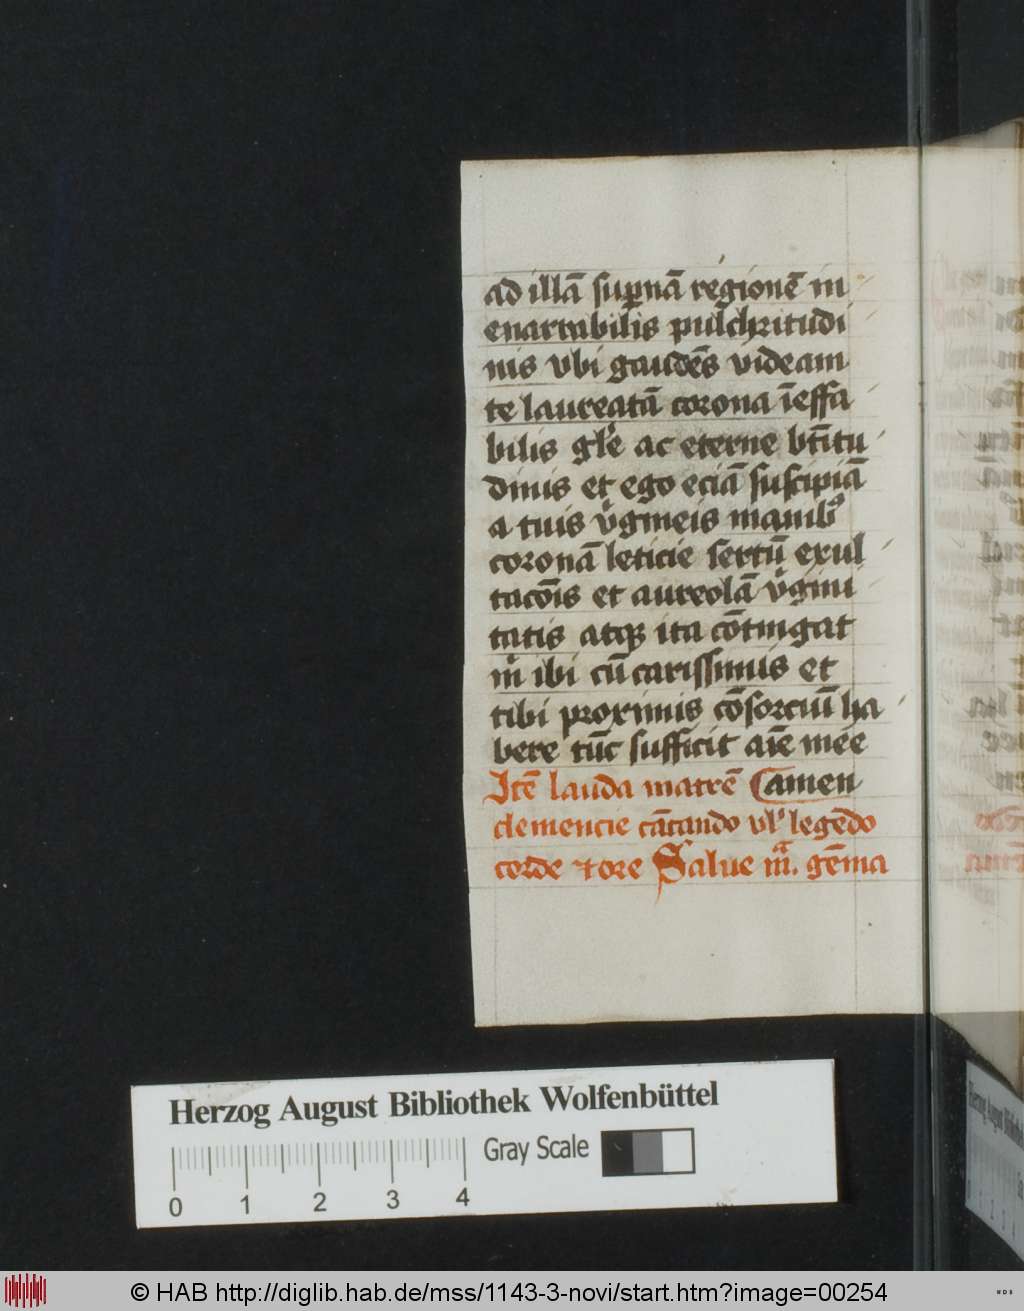 ad illā suꝑnā regionē in
enarrabilis pulchritudi
nis vbi gaudēs videam
te laureatā corona īeffa
bilis glͥe ac eterne btītu
dinis et ego eciā suscipiā
a tuis vͥgineis manibꝰ
coronā leticie sertū exul
tacōis et aureolā vͥgini
tatis atqꝫ ita cōtingat
mͥ ibi cū carissimis et
tibi proximis cōsorciū ha
bere tūc sufficit aīe mee
Itē lauda matrē Camen
clemencie cātando vlʼ legēdo
corde ⁊ ore Salue mͣ. gēma
Herzog August Bibliothek Wolfenbüttel
Gray Scale
0 1 2 3 4
© HAB http://diglib.hab.de/mss/1143-3-novi/start.htm?image=00254